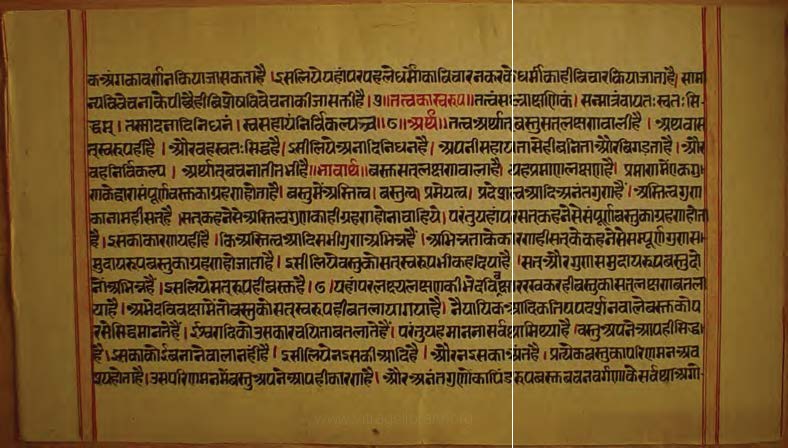 क अंगका वर्णन किया जा सकता है । इसलिये यहां पर पहले धर्मी का विचार न करके धर्मी का ही विचार किया जाता है, सामा
न्य विवेचना के पीछे ही विशेष विवेचना की जा सक्ती है । ७ ॥ तत्व का स्वरूप ॥ तत्वं सल्लाक्षणिकं । सन्मात्रं वा यतः स्वतः सि-
द्धम् । तस्मादनादिनिधनं । स्वसहायं निर्विकल्पं च ॥ ८ ॥ अर्थ ॥ तत्व अर्थात् वस्तु सत् लक्षणवाली है । अथवा स
त् स्वरूप ही है । और वह स्वतः सिद्ध है । इसलिये अनादि निधन है । अपनी सहायता से ही बनता और बिगड़ता है । और
वह निर्विकल्प । अर्थात् वचनातीत भी है ॥ भावार्थ ॥ वस्तु सत् लक्षणवाला है, यह प्रमाण लक्षण है । प्रमाण में एक गु
ण के द्वारा संपूर्ण वस्तु का ग्रहण होता है । वस्तु में अस्तित्व । वस्तुत्व । प्रमेयत्व । प्रदेशत्व आदि अनंत गुण हैं । अस्तित्व गुण
का नाम ही सत् है । सत् कहने से अस्तित्व गुण का ही ग्रहण होना चाहिये । परंतु यहां पर सत् कहने से संपूर्ण वस्तु का ग्रहण होता
है । इसका कारण यही है । कि अस्तित्व आदि सभी गुण अभिन्न हैं । अभिन्नता के कारण ही सत् के कहने से सम्पूर्ण गुण स
मुदाय रूप वस्तु का ग्रहण हो जाता है । इसलिये वस्तु को सत् स्वरूप भी कह दिया है । सत् और गुण समुदाय रूप वस्तु दो
नों अभिन्न हैं । इसलिये सत् रूप ही वस्तु है । ८ । यहां पर लक्ष्य लक्षण की भेद विवक्षा रखकर ही वस्तु का सत् लक्षण बतला
या है । अभेद विवक्षा में तो वस्तु को सत् स्वरूप ही बतलाया गया है । नैयायिक आदि कतिपय दर्शनवाले वस्तु को प
र से सिद्ध मानते हैं । ईश्वरादि को उसका रचयिता बतलाते हैं । परंतु यह मानना सर्वथा मिथ्या है । वस्तु अपने आप ही सिद्ध
है । इसका कोई बनाने वाला नहीं है । इसलिये न इसकी आदि है । और न इसका अंत है । प्रत्येक वस्तु का परिणमन अव
श्य होता है । उस परिणमन में वस्तु अपने आप ही कारण है । और अनंत गुणों का पिंड रूप वस्तु वचन वर्गणा के सर्वथा अगो-